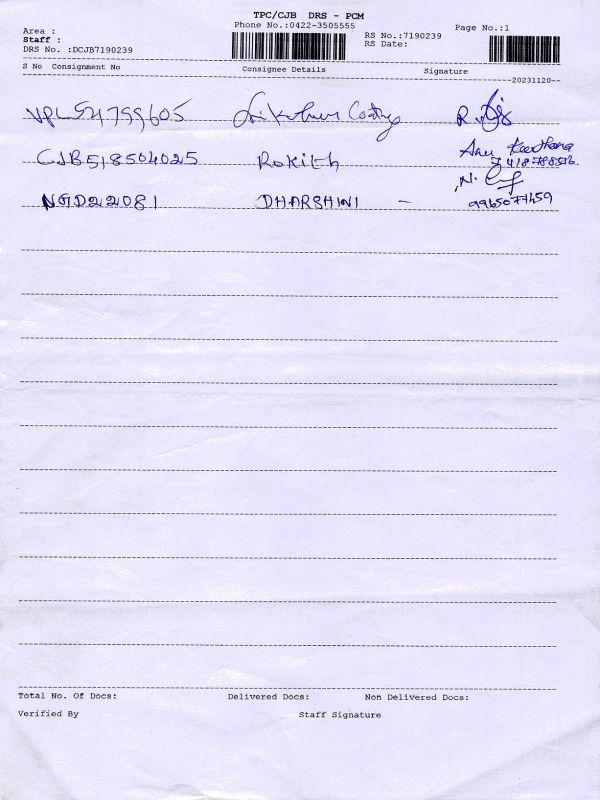 TPC/CJB DRS - PCM
Phone No.:0422-3505555
Page No.:1
Area :
Staff :
RS No.:7190239
DRS No. :DCJB7190239
RS Date:
S No Consignment No Consignee Details Signature
--20231120--
VPL54799605
CJB518504025 Rokith
7418778516
NGD22081 DHARSHINI -
9965077459
Total No. Of Docs: Delivered Docs: Non Delivered Docs:
Verified By Staff Signature